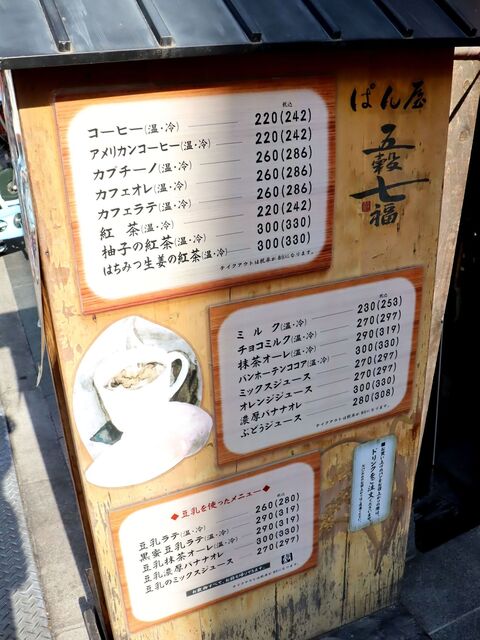 ぱん屋
五穀七福
税込
コーヒー(温・冷) 220(242)
アメリカンコーヒー(温・冷) 220(242)
カプチーノ(温・冷) 260(286)
カフェオレ(温・冷) 260(286)
カフェラテ(温・冷) 260(286)
紅 茶(温・冷) 220(242)
柚子の紅茶(温・冷) 300(330)
はちみつ生姜の紅茶(温・冷) 300(330)
テイクアウトは税率が8%になります。
税込
ミ ル ク(温・冷) 230(253)
チョコミルク(温・冷) 270(297)
抹茶オーレ(温・冷) 290(319)
バンホーテンココア(温・冷) 300(330)
ミックスジュース 270(297)
オレンジジュース 270(297)
濃厚バナナオレ 300(330)
ぶどうジュース 280(308)
テイクアウトは税率が8%になります。
ドリンクをご注文
◆豆乳を使ったメニュー◆
豆乳ラテ(温・冷) 260(280)
黒蜜豆乳ラテ(温・冷) 290(319)
豆乳抹茶オーレ(温・冷) 290(319)
豆乳濃厚バナナオレ 300(330)
豆乳のミックスジュース 270(297)
テイクアウトは税率が8%になります。